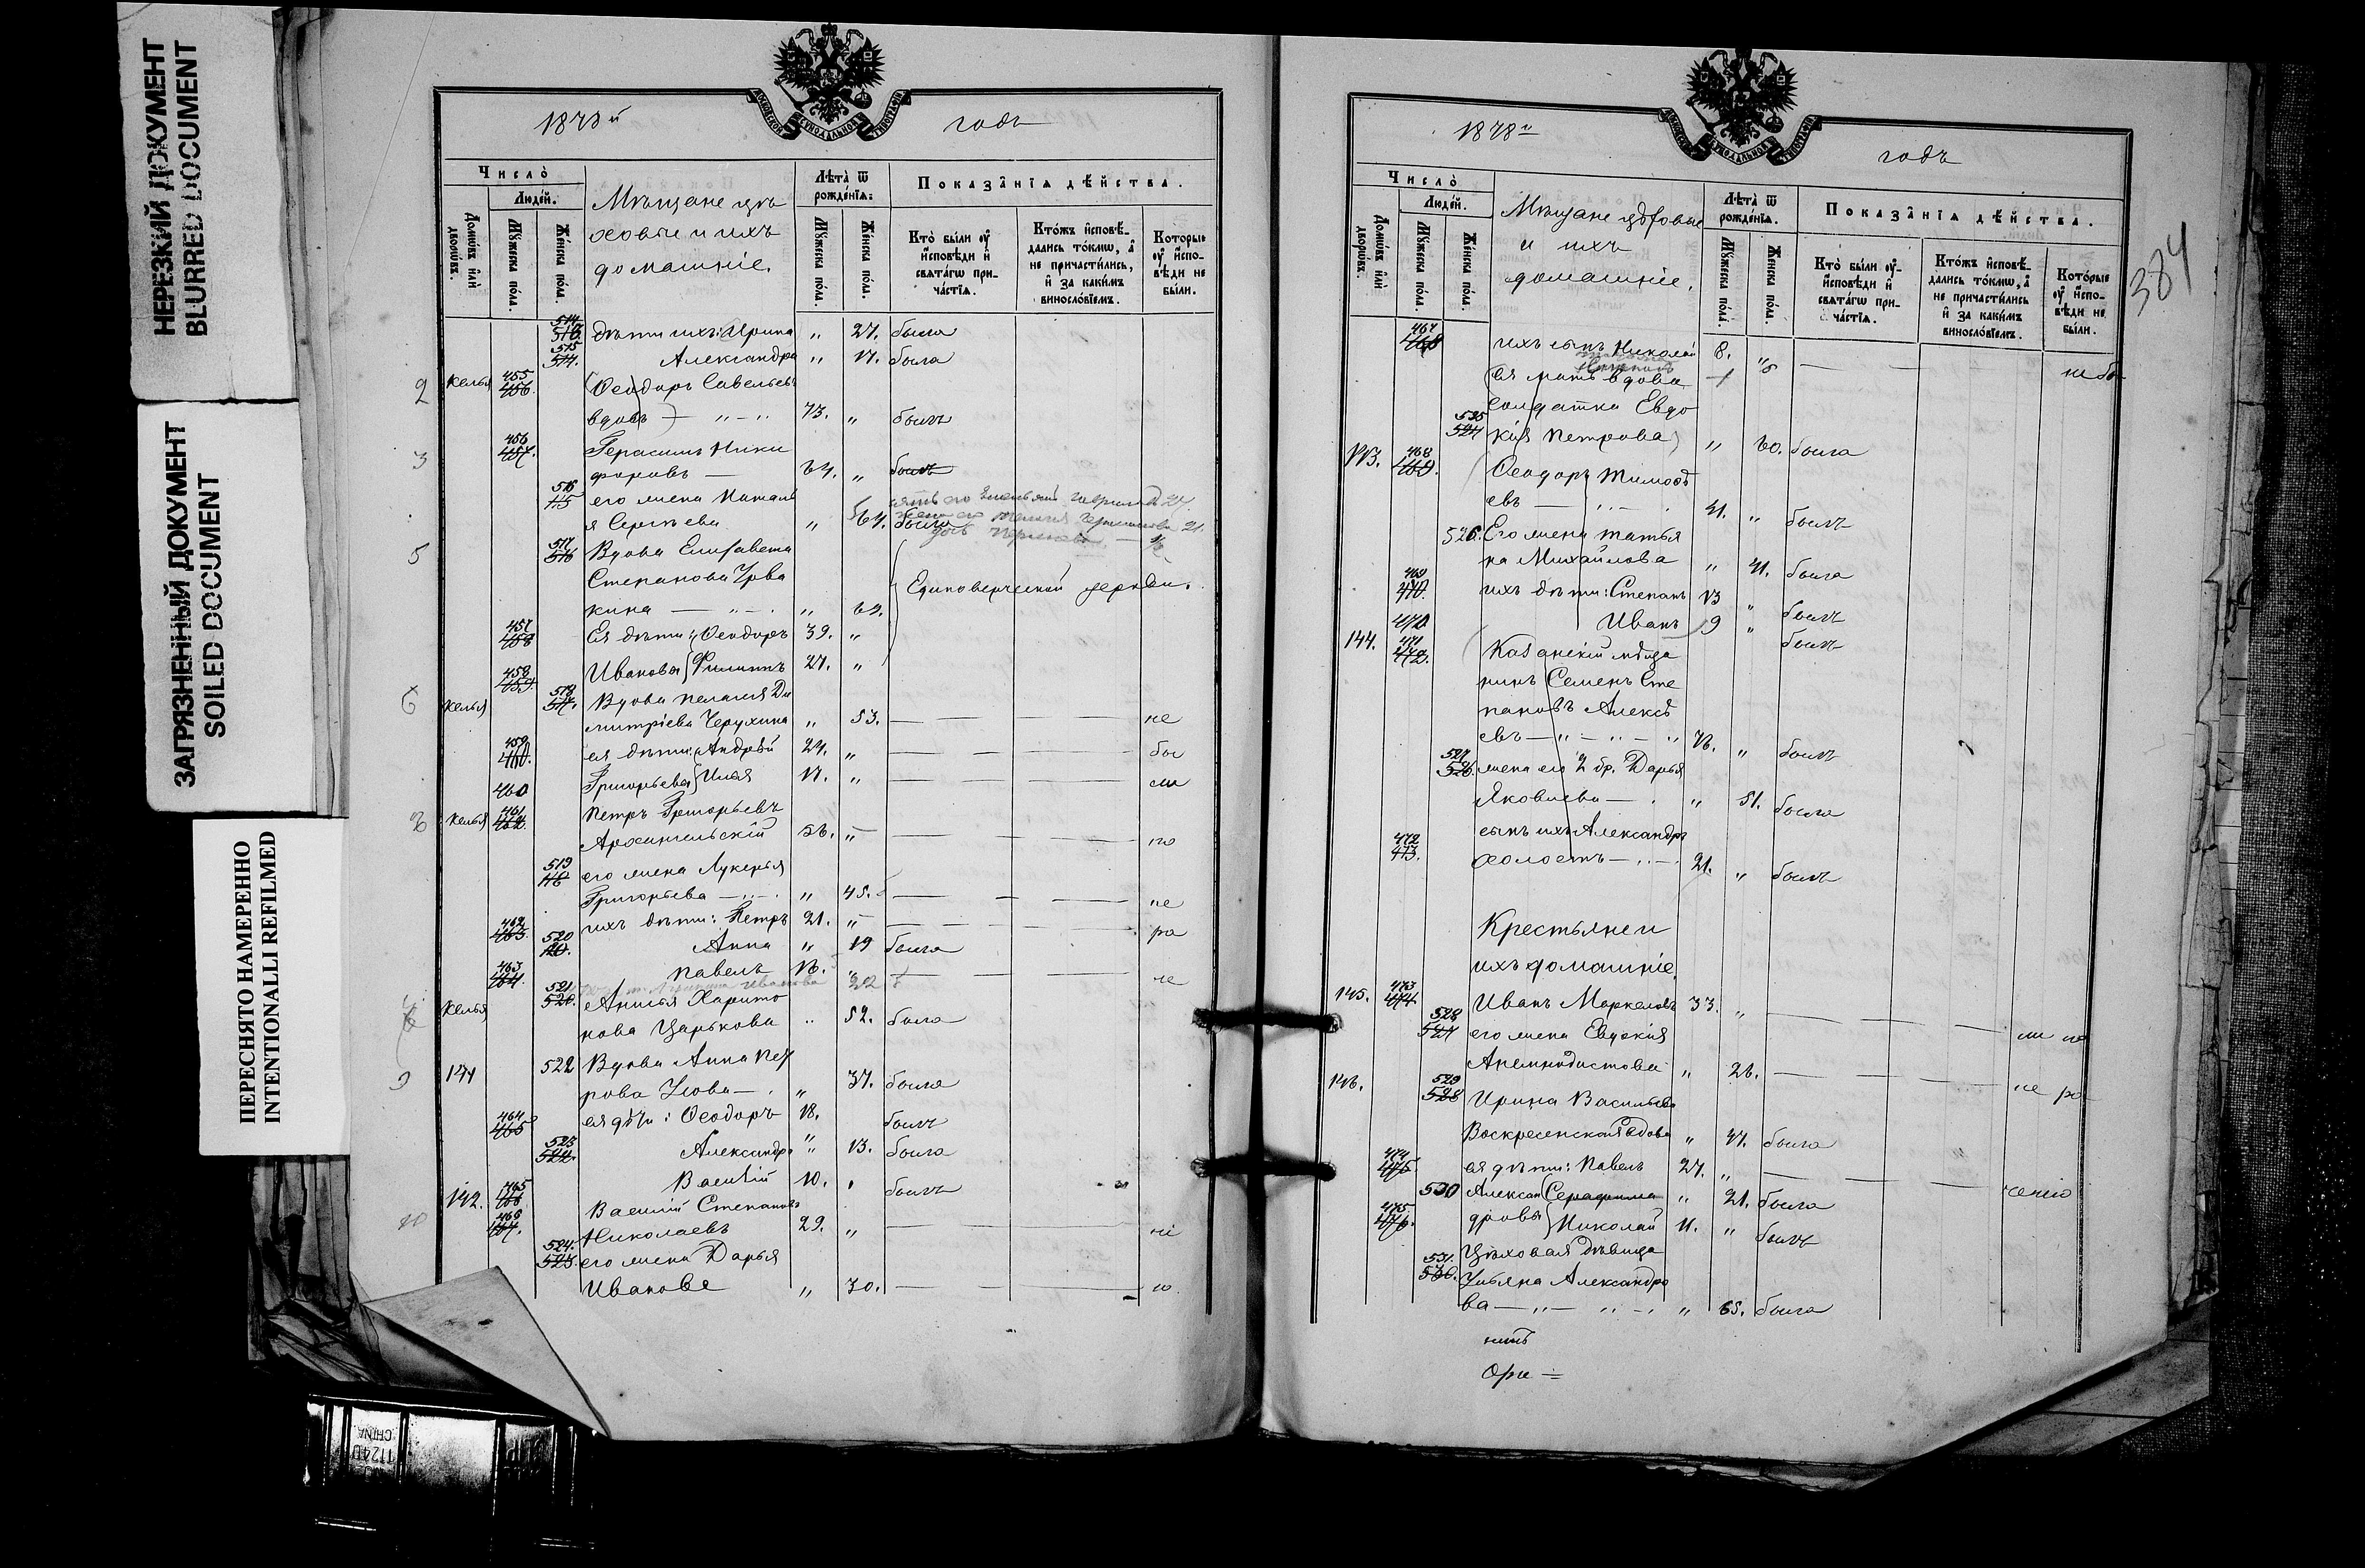 НЕРЕЗКИЙ ДОКУМЕНТ
BLURRED DOCUMENT
ЗАГРЯЗНЕННЫЙ ДОКУМЕНТ
SOILED DOCUMENT
ПЕРЕСНЯТО НАМЕРЕННО
INTENTIONALLI REFILMED
1878й годъ
Число̀
Людѐй.
Домѡвъ и҆лѝ дворѡвъ.
Мꙋжеска пола.
Женска пола.
Мѣщане цѣ
ховые и ихъ
домашніе.
Лѣта̀ ѿ рожде́нїѧ:
Мꙋжеска пола.
Женска пола.
Показа̑нїѧ дѣ́йства.
Кто̀ бы́ли ᲂу҆ и҆сповѣди и҆ свѧта́гѡ прича́стїѧ.
Кто́жъ и҆сповѣ́дались то́кмѡ, а҆ не причасти́лись, и҆ за каки́мъ винослѡ́вїемъ.
Кото́рые ᲂу҆ и҆спо-вѣди не бы́ли.
514 516. дѣти ихъ: Ирина „ 27. была
515 517. Александра „ 17. была
2 Келья 455 456. Ѳеодоръ Савельевъ
вдовъ — „ — „ 73. „ былъ
3 456 457. Герасимъ Ники
форовъ — 64. „ былъ
516 его жена Наталь
я Сергѣева „ 64. была
5 517 516 Вдова Елисавета
Степанова
кина — „ — „ 62.
Единоверческой церкви.
457 458 Ея дѣти: Ѳеодоръ 39. „
458 459. Ивановы Филиппъ 27. „
6 Келья 518 517. Вдова Пелагия Ди
митріева Черухина „ 53. — — — не
459 460. ея дѣти: Андрей 24. „ — — — бы
460 Григорьевы Илья 17. „ — — — ли
Келья 461 462. Петръ Григорьевъ
Архангельскій 56. „ — — — по
519 его жена Лукерья
Григорьева — „ — „ 45. — — — не
462 463. ихъ дѣти: Петръ 21. „ — — — ра
520 Анна „ 19 была
463 464. Павелъ 16. „ — — — че
Келья 521 520. Анисья Харито
нова Царькова „ 52. была
9 141 522 Вдова Анна Пет
рова — „ 37. была
464 465 ея дѣти: Ѳеодоръ 18. былъ
523 522. Александра „ 13. была
465 466 Василій 10. былъ
10 142. 466 467. Василій Степановъ
Николаевъ 29. „ — — ні
524. 523. его жена Дарья
Иванова „ 30. — — ю.
1878й годъ
384
Число̀
Людѐй.
Домѡвъ и҆лѝ дворѡвъ.
Мꙋжеска пола.
Женска пола.
Мѣщане цеховые
и ихъ
домашніе.
Лѣта̀ ѿ рожде́нїѧ.
Мꙋжеска пола.
Женска пола.
Показа̑нїѧ дѣ́йства.
Кто̀ бы́ли ᲂу҆ и҆сповѣди и҆ свѧта́гѡ прича́стїѧ.
Кто́жъ и҆сповѣ́дались то́кмѡ, а҆ не причасти́лись и҆ за каки́мъ винослѡ́вїемъ.
Кото́рые ᲂу҆ и҆спо-вѣди не бы́ли.
467 468 ихъ сынъ Николай 8. „ — — не бы
ея мать вдова
солдатка Евдо
525 524 кія Петрова „ 60. была
143. 468 469. Ѳеодоръ Тимоѳѣ
евъ — „ — 41. „ былъ
526. Его жена Татья
на Михайлова „ 41. была
469 470. ихъ дѣти: Степанъ 13 „ былъ
470 Иванъ 9 „ былъ
144. 471 472. Казанскій мѣща
нинъ Семенъ Сте
пановъ Алексѣ
евъ — „ — „ — „ 76. „ былъ
527 526. жена его 2 бр. Дарья
Яковлева — . „ 51. была
472 473. сынъ ихъ Александръ
холостъ — „ — 21. „ былъ
Крестьяне и
ихъ домашніе.
145. 473 474. Иванъ Маркеловъ 33. „ — — —
528 527 его жена Евдокія
Анемподистова „ 26. — — —
146. 529 528 Ирина Васильева
Воскресенская вдова „ 47. была
474 475 ея дѣти: Павелъ 27. „ —
530 Алексан Серафима „ 21. была
475 476. дровы Николай 11. „ былъ
531. 530. Цеховая дѣвица
Ульяна Александро
ва — „ — „ — „ 65. была